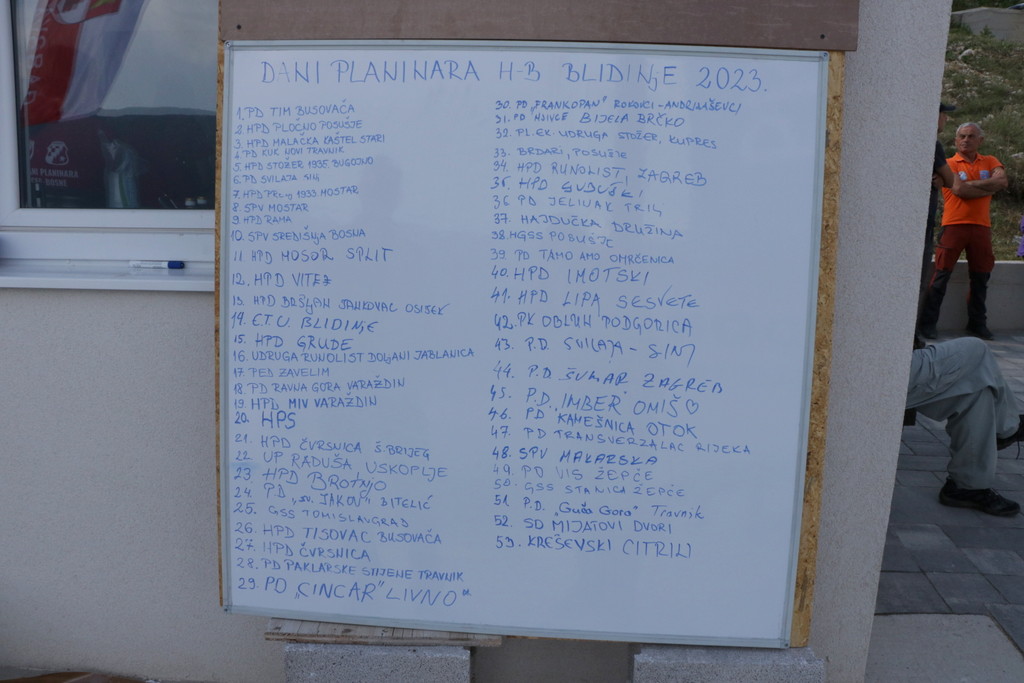 DANI PLANINARA H-B BLIDINJE 2023.
1. PD TIM BUSOVAČA
2. HPD PLOČNO POSUŠJE
3. HPD MALAČKA KAŠTEL STARI
4. PD KUK NOVI TRAVNIK
5. HPD STOŽER 1935, BUGOJNO
6. PD SVILAJA SINJ
7. HPD PRENJ 1933 MOSTAR
8. SPV MOSTAR
9. HPD RAMA
10. SPV SREDIŠNJA BOSNA
11 HPD MOSOR SPLIT
12. HPD VITEZ
13. HPD BOŠLJAN JANKOVAC OSIJEK
14. E.T.U. BLIDINJE
15. HPD GRUDE
16. UDRUGA RUNOLIST DOLJANI JABLANICA
17 PED ZAVELIM
18. PD RAVNA GORA VARAŽDIN
19. HPD MIV VARAŽDIN
20. HPS
21. HPD ČVRSNICA Š.BRIJEG
22 UP RADUŠA USKOPLJE
23 HPD BROTNJO
24. PD „SV. JAKOV" BITELIĆ
25. GSS TOMISLAVGRAD
26. HPD TISOVAC BUSOVAČA
27. HPD ČVRSNICA
28. PD PAKLARSKE STIJENE TRAVNIK
29. PD „CINCAR" LIVNO
30. PD „FRANKOPAN" -ANDRIJAŠEVCI
31. PD BIJELA BRČKO
32. PL. EK. UDRUGA STOŽER, KUPRES
33. BRDARI, POSUŠJE
34. HPD RUNOLIST, ZAGREB
35. HPD GVDUŠKI
36 PD JELINAK TRILJ
37. HAJDUČKA DRUŽINA
38. HGSS POSUŠJE
39. PD TAMO AMO OMRČENICA
40. HPD IMOTSKI
41. HPD LIPA SESVETE
42. PK OBLUN PODGORICA
43. P.D. SVILAJA - SINJ
44. P.D ŠUMAR ZAGREB
45. P.D. „IMBER" OMIŠ♡
46. PD KAMEŠNICA OTOK
47. PD TRANSVERZALAC RIJEKA
48. SPV MAKARSKA
49. PD VIS ŽEPČE
50. GSS STANICA ŽEPČE
51. P.D. „Guča Gora" Travnik
52. SD MIJATOVI DVORI
53. KREŠEVSKI CITRILI